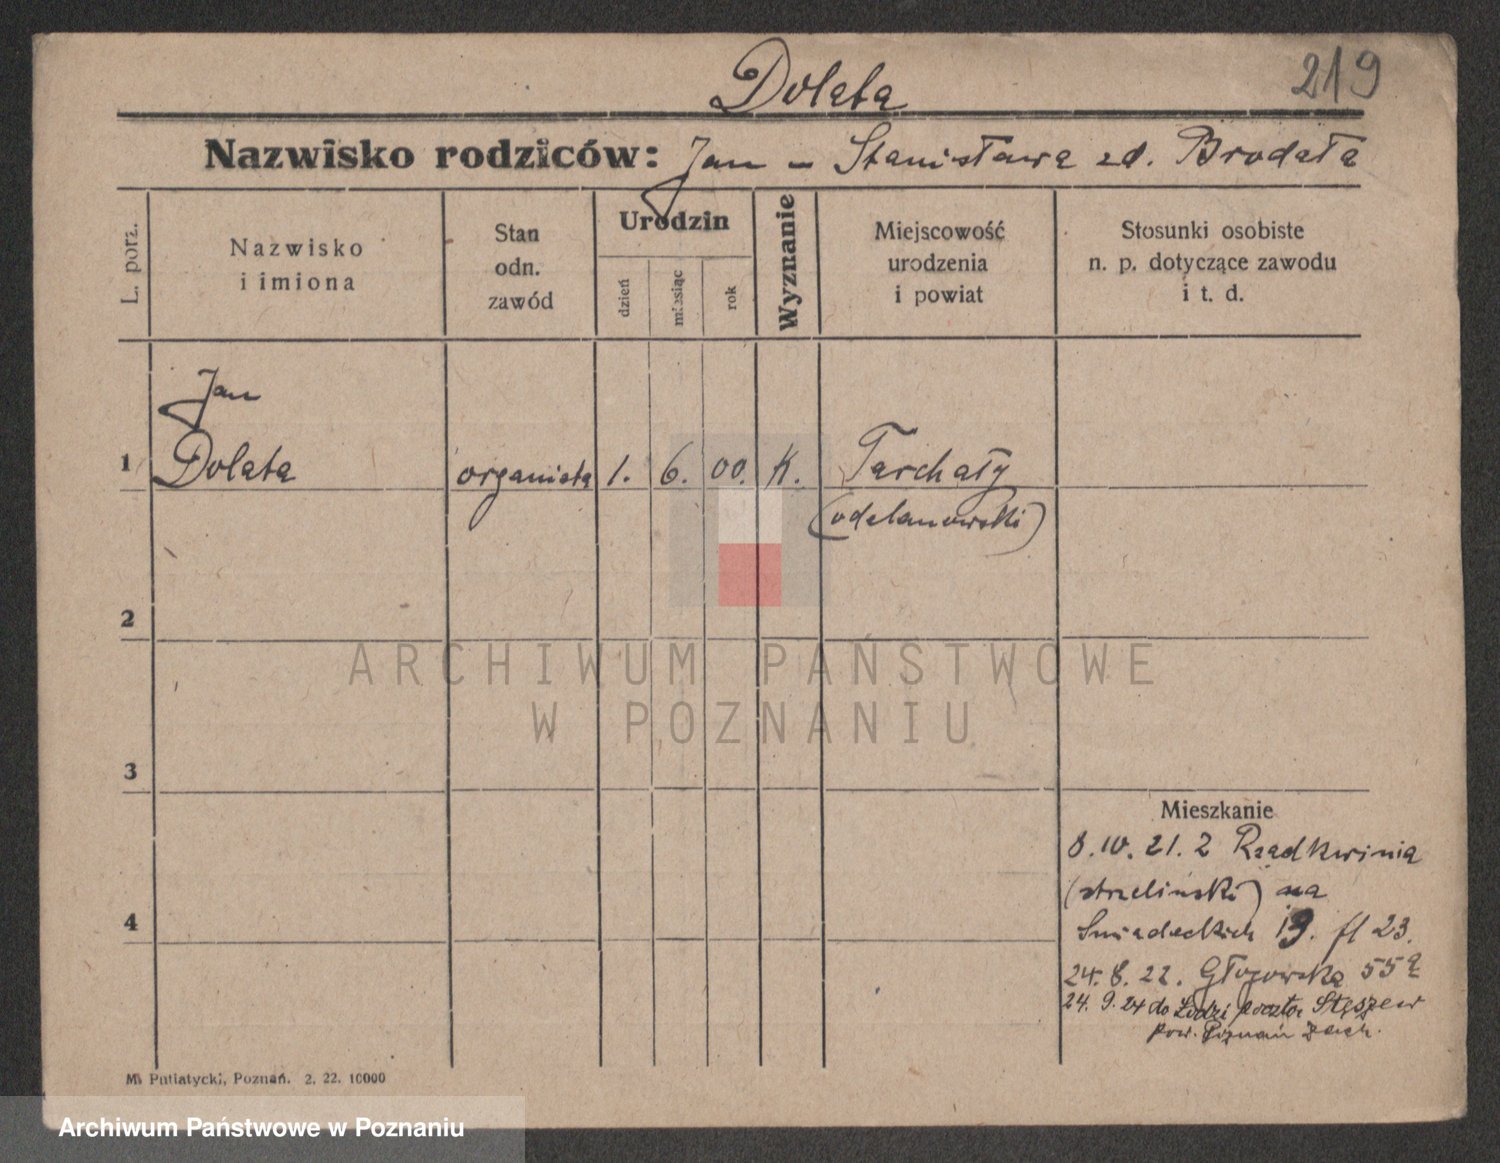 219
Dolata
Nazwisko rodziców: Jan – Stanisława zd. Brodała
L. porz.
Nazwisko
i imiona
Stan
odn.
zawód
Urodzin
dzień
miesiąc
rok
Wyznanie
Miejscowość
urodzenia
i powiat
Stosunki osobiste
n. p. dotyczące zawodu
i t. d.
Jan
1 Dolata organista 1. 6. 00. K. Tarchały
(odolanowski)
2
ARCHIWUM PAŃSTWOWE
W POZNANIU
3
Mieszkanie
8.10.21. z Rządkwinia
(strzeliński) na
4
Śniadeckich 19. 23.
24.8.22. Głogowska 55
24.9.24 do Łodzi poczta Stęszew
pow. Poznań Zach.
M. Putiatycki, Poznań. 2. 22. 10000
Archiwum Państwowe w Poznaniu